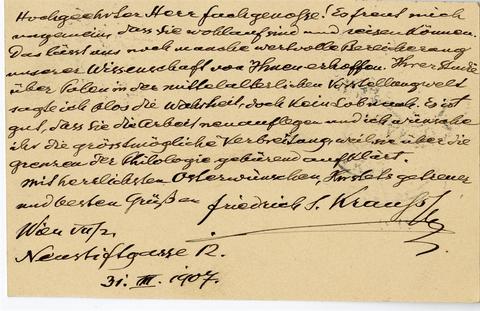 Hochgeehrter Herr Fachgenosse! Es freut mich
ungemein, dass sie wohlauf sind und reisen können.
Das lässt uns noch manche wertvolle Bereicherung
unserer Wissenschaft von Ihnen erhoffen. Ihrer Studie
über Polen in der mittelalterlichen Vorstellungswelt
sagte ich blos die Wahrheit, doch kein Lob nach. Es ist
gut, dass sie die Arbeit neu auflegen und ich wünsche
ihr die grösstmögliche Verbreitung, weil sie über die
grenzen der Philologie gebürend aufklärt.
Mit herzlichsten Osterwünschen, Ihr stets getreuer
und besten Grüßen Friedrich S. Krauss
Wien VII/2
Neustiftgasse 12.
31. III. 1907.